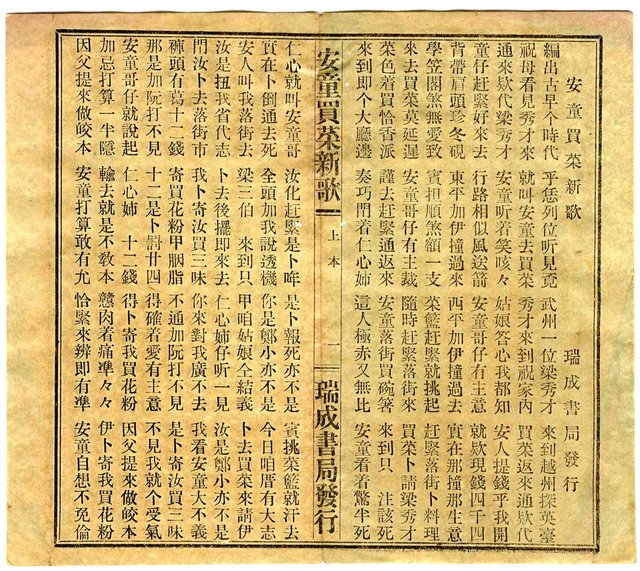 安童買菜新歌　瑞成書局發行
編出古早个時代　乎恁列位听見竟　武州一位梁秀才　來到越州探英臺
祝母看見秀才來　就叫安童去買菜　秀才來到祝家內　買菜返來通欵代
通來欵代梁秀才　安童听着笑咳々　姑娘答心我都知　安人提錢乎我開
童仔赶緊好來去　行路相似風送箭　安童哥仔有主意　就欵現錢四千四
背帶肩頭珍冬硯　東平加伊撞過來　西平加伊撞過去　實在那撞那生意
學笠閣煞無愛致　賓担順煞額一支　菜籃赶緊就挑起　赶緊落街卜料理
來去買菜莫延遲　安童哥仔有主裁　隨時赶緊落街來　買菜卜請梁秀才
菜色着買恰香派　謹去赶緊通返來　安童落街買碗箸　來到只　注該死
來到即个大廳邊　奏巧閗着仁心姉　這人極赤又無比　安童看着驚半死
安童買菜新歌　上本　一　瑞成書局發行
仁心就叫安童哥　汝化赶緊是卜咋　是卜報死亦不是　賓挑菜籃就汗去
實在卜倒通去死　全頭加我說透機　你是鄭小亦不是　今日咱厝有大志
安人叫我落街去　梁三伯　來到只　甲咱姑娘仝結義　卜去買菜來請伊
汝是扭我省代志　卜去後擺即來去　仁心姉仔听一見　汝是鄭小亦不是
門汝卜去落街市　我卜寄汝買三味　你來對我廣不去　我看安童大不義
褲頭有葛十二錢　寄買花粉甲胭脂　不通加阮打不見　是卜寄汝買三味
那是加阮打不見　十二是卜討廿四　得確着愛有主意　不見我就个受氣
安童哥仔就說起　仁心姉　十二錢　得卜寄我買花粉　因父提來做皎本
加忌打算一半隱　輸去就是不敎本　戇肉着痛凖々々　伊卜寄我買花粉
因父提來做皎本　安童打算敢有允　恰緊來辨即有凖　安童自想不免倫